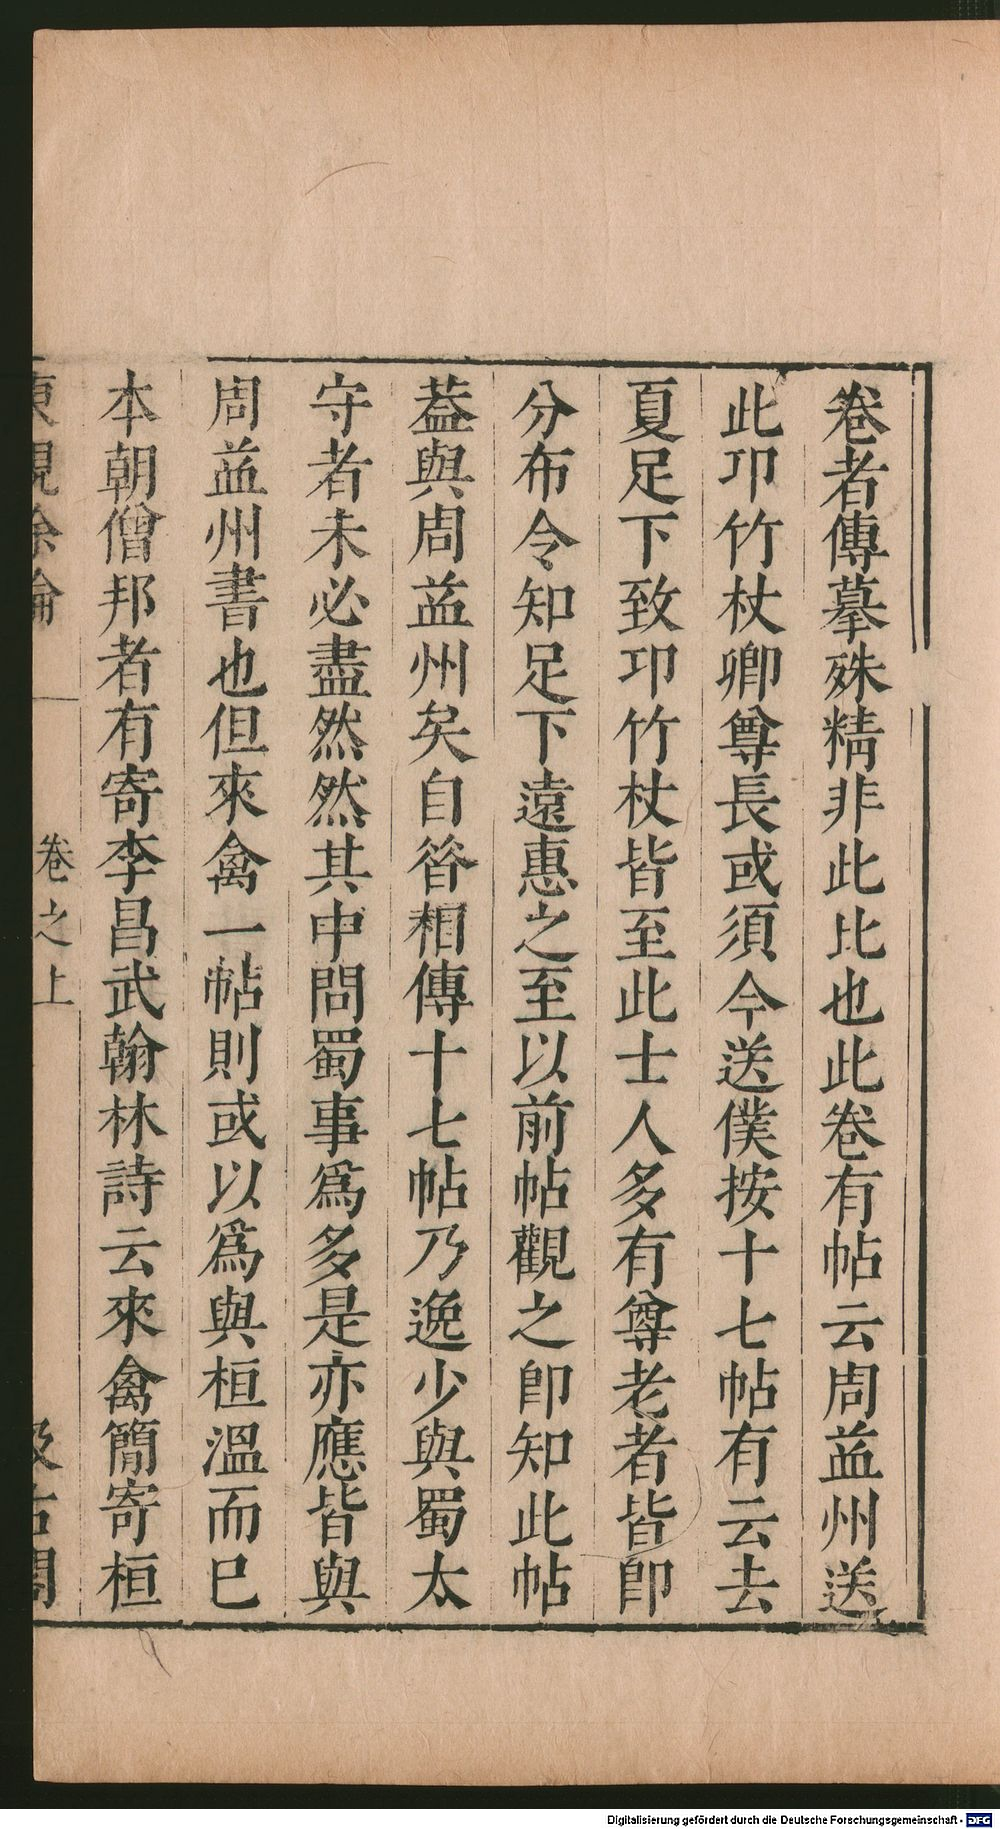 卷者傳摹殊精非此比也此卷有帖云周益州送
此卭竹杖卿尊長或須今送僕按十七帖有云去
夏足下致卭竹杖皆至此士人多有尊老者皆卽
分布令知足下遠惠之至以前帖觀之卽知此帖
葢與周益州矣自昝相傳十七帖乃逸少與蜀太
守者未必盡然然其中問蜀事爲多是亦應皆與
周益州書也但來禽一帖則或以爲與桓溫而巳
本朝僧邦者有寄李昌武翰林詩云來禽簡寄桓
東觀餘論 卷之上 汲古閣
Digitalisierung gefördert durch die Deutsche Forschungsgemeinschaft - DFG